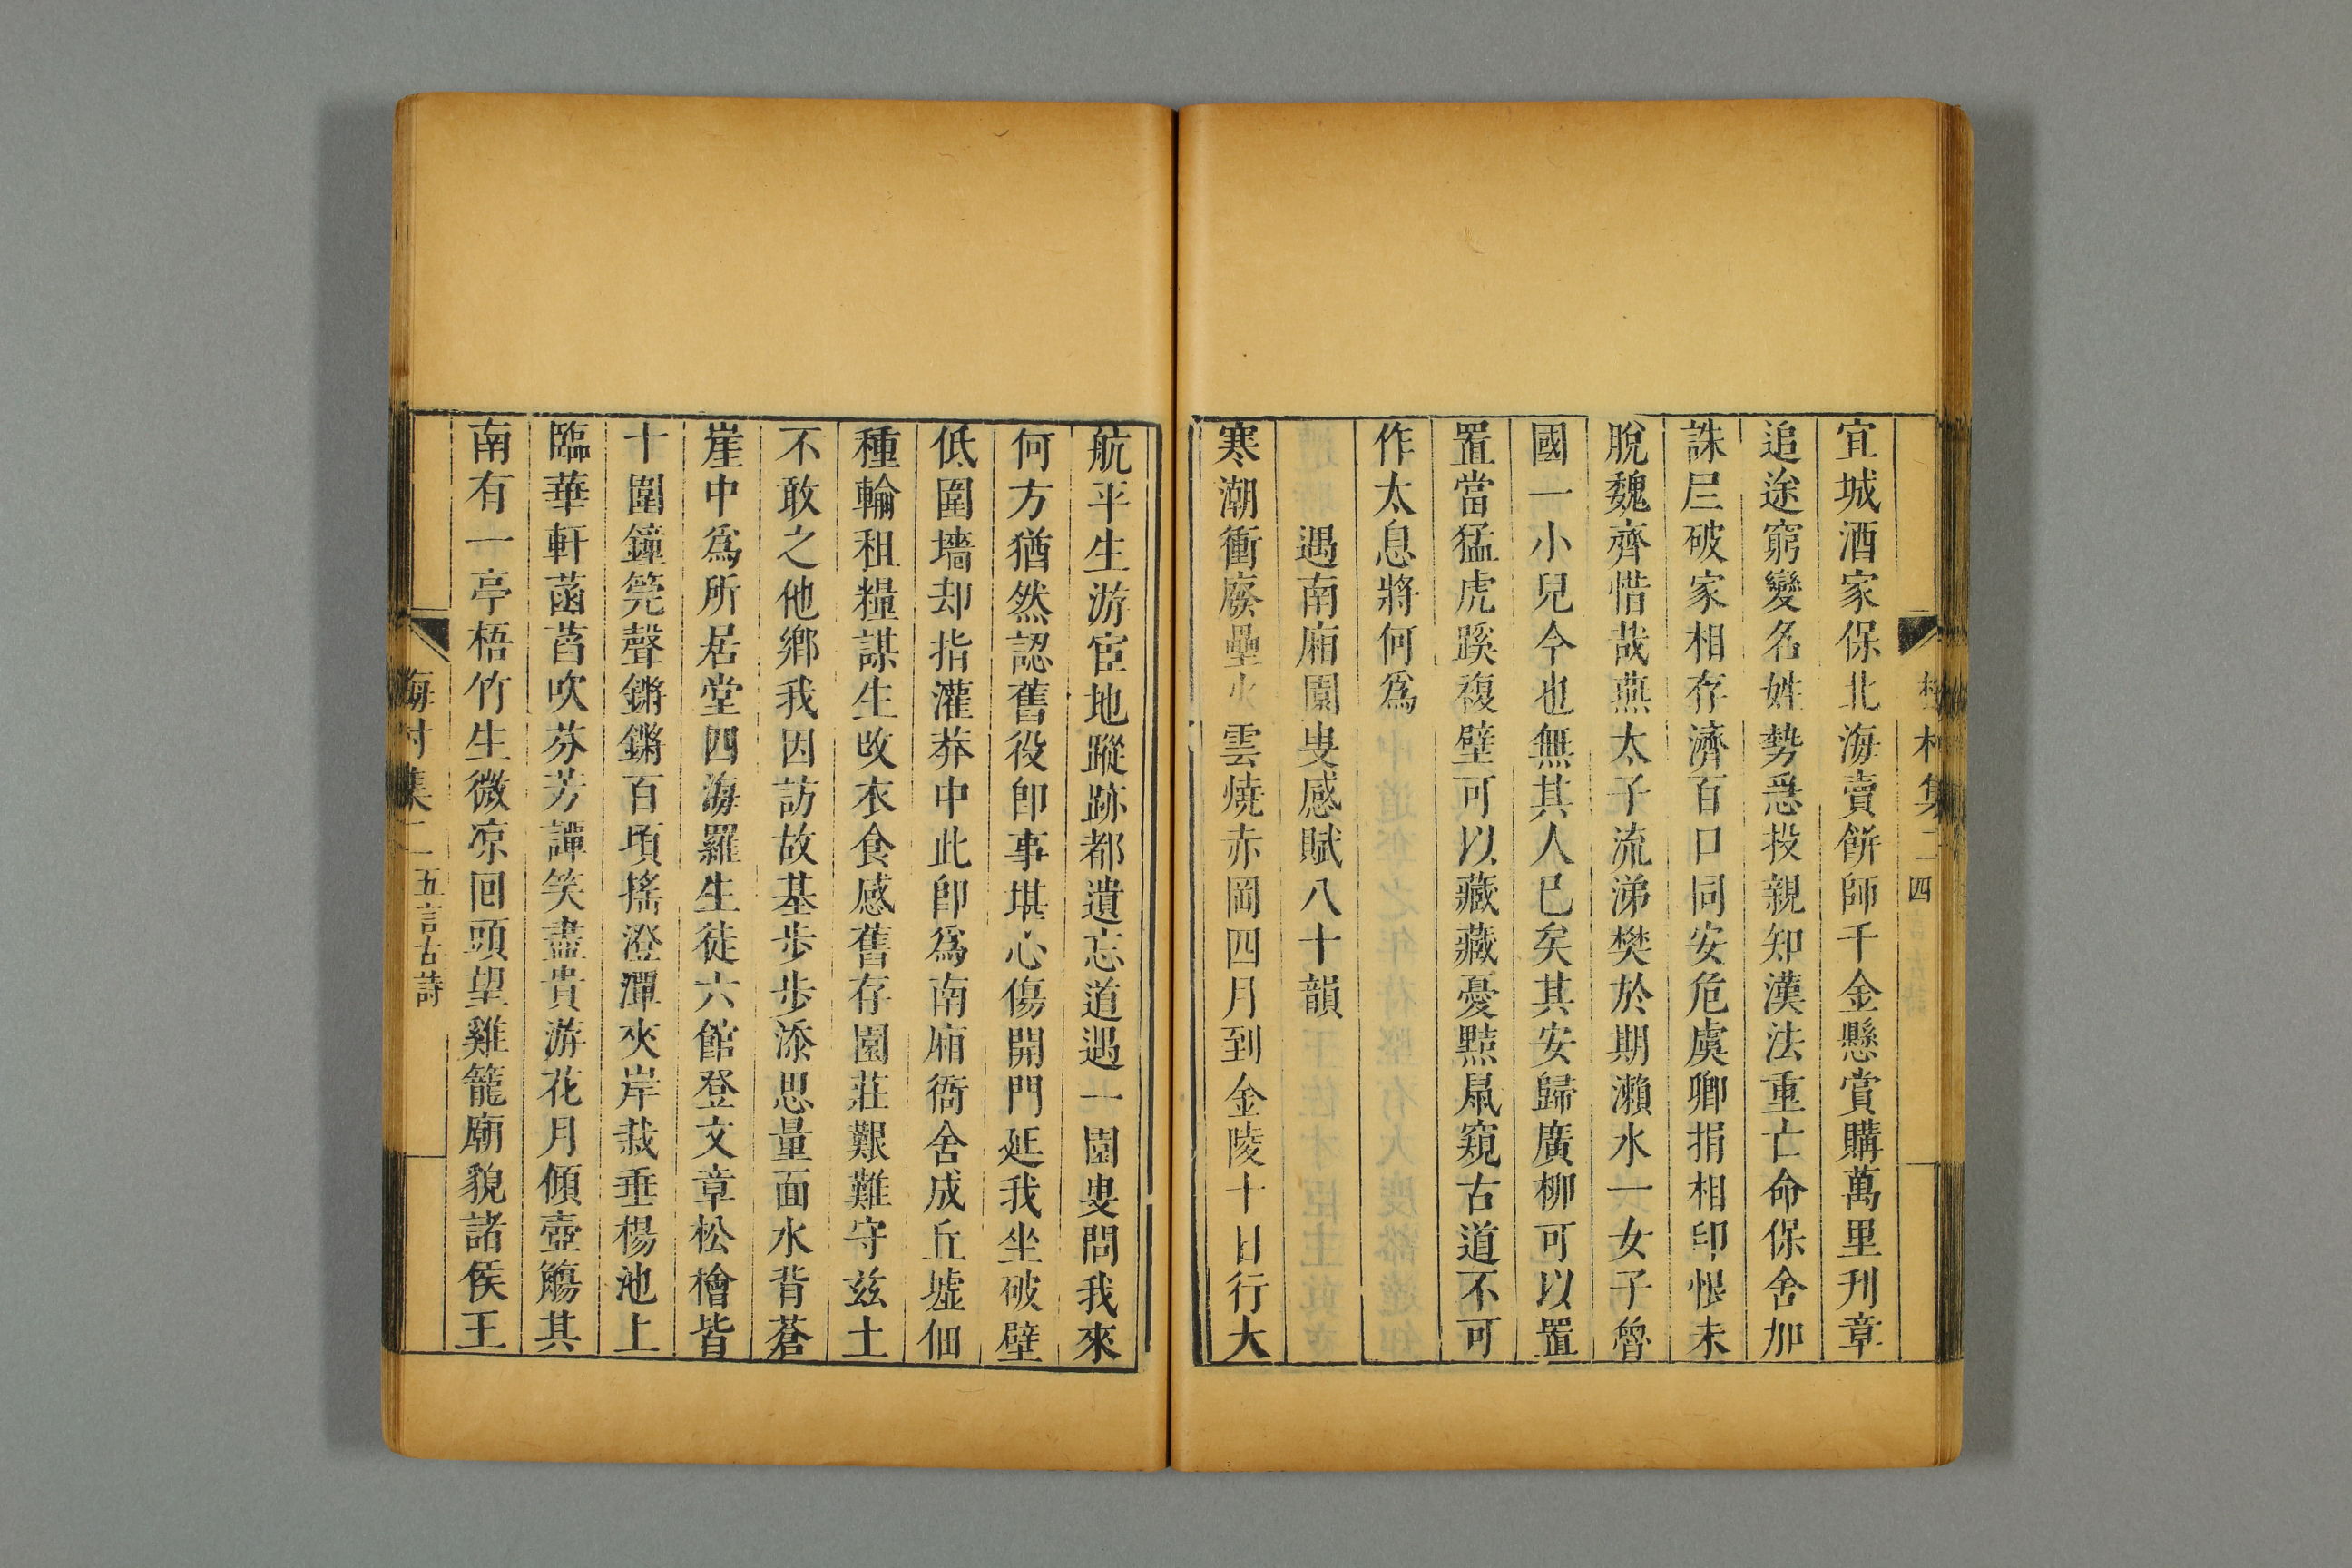 宜城酒家保北海賣餅師千金懸賞購萬里刋章
追途窮變名姓勢急投親知漢法重亡命保舍加
誅𡰥破家相存濟百口同安危虞卿捐相印恨未
脫魏齊惜哉燕太子流涕樊於期瀨水一女子魯
國一小兒今也無其人已矣其安歸廣柳可以置
置當猛虎蹊複壁可以藏藏憂黠鼠窺古道不可
作太息將何為
遇南廂園叟感賦八十韻
寒潮衝廢壘火雲燒赤岡四月到金陵十日行大
航平生游宦地蹤跡都遺忘道遇一園叟問我來
何方猶然認舊役卽事堪心傷開門延我坐破壁
低圍墻却指灌莽中此卽爲南廂衙舍成丘墟佃
種輸租糧謀生改衣食感舊存園莊艱難守茲土
不敢之他鄉我因訪故基步步添思量面水背蒼
崖中爲所居堂四海羅生徒六館登文章松檜皆
十圍鐘筦聲鏘鏘百頃搖澄潭夾岸栽垂楊池上
臨華軒菡萏吹芬芳譚笑盡貴游花月傾壺觴其
南有一亭梧竹生微凉回頭望雞籠廟貌諸侯王
梅村集 二 五言古詩